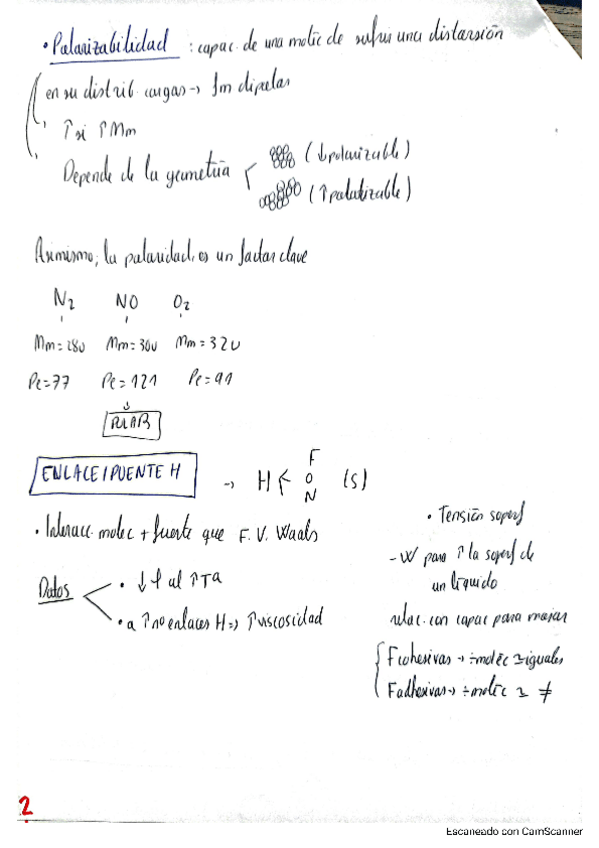 • Polarizabilidad : capac. de una moléc de sufrir una distorsión
en su distrib. cargas → fm dipolos
↑ si ↑ Mm
Depende de la geometría < (↓polarizable)
(↑polarizable)
Asimismo, la polaridad, es un factor clave
N2 NO O2
Mm=28u Mm=30u Mm=32u
Pe=77 Pe=121 Pe=91
↓
POLAR
ENLACE/PUENTE H → H < F O N (s)
• Interacc. molec + fuerte que F. V. Waals
Datos < • ↓f al ↑Tª
• a ↑nº enlaces H ⇒ ↑viscosidad
• Tensión superf
- W para ↑ la superf de
un líquido
relac. con capac para mojar
{ Fcohesivas → ÷ moléc ≃ iguales
Fadhesivas → ÷ moléc ≃ ≠
2
Escaneado con CamScanner